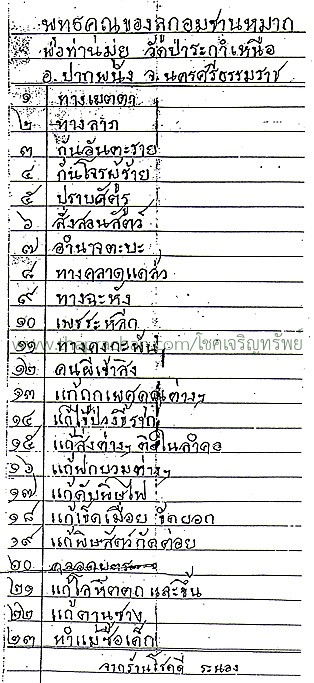 พุทธคุณของลูกอมชานหมาก
พ่อท่านมุ่ย วัดป่าระกำเหนือ
อ.ปากพนัง จ.นครศรีธรรมราช
๑ ทางเมตตา
๒ ทางลาภ
๓ กันอันตะราย
๔ กันโจรผู้ร้าย
๕ ปราบศัตรู
๖ สั่งสอนสัตว์
๗ อำนาจตะบะ
๘ ทางคลาดแคล้ว
๙ ทางฉะหัง
๑๐ เพชระหลีก
๑๑ ทางคงกะพัน
๑๒ คนผีเข้าสิง
๑๓ แก้ถูกเพศคุณต่างๆ
๑๔ แก้ไข้ป่วงขี้ราก
๑๕ แก้สิ่งต่างๆ ติดในลำคอ
๑๖ แก้ฟกบวมต่างๆ
๑๗ แก้ดับพิษไฟ
๑๘ แก้เข็ดเมื่อย ขัดยอก
๑๙ แก้พิษสัตว์กัดต่อย
๒๐
๒๑ แก้โลหิตตก และขึ้น
๒๒ แก้ตานซาง
๒๓ ทำแม่ซื้อเด็ก
จากร้านโชคดี ระนอง
/โชคเจริญทรัพย์